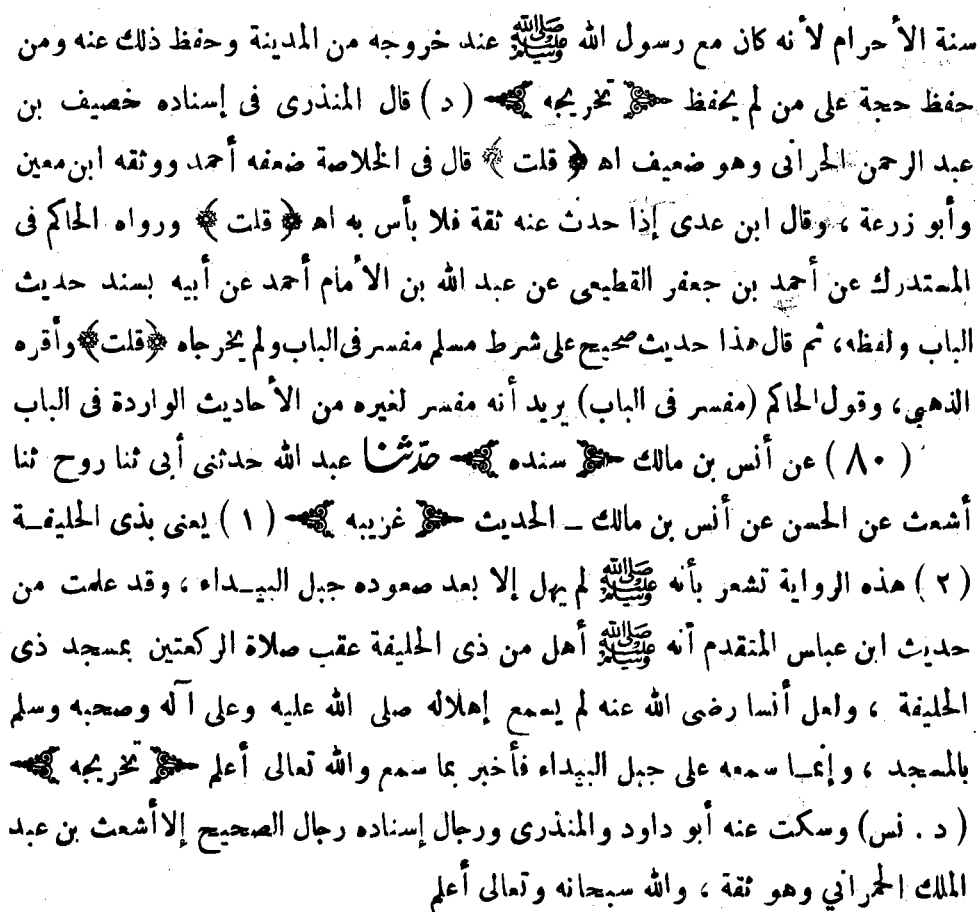 سنة الأحرام لأنه كان مع رسول الله ﷺ عند خروجه من المدينة وحفظ ذلك عنه ومن
حفظ حجة على من لم يحفظ ﴿ تخريجه ﴾ ( د ) قال المنذرى فى إسناده خصيف بن
عبد الرحمن الحرانى وهو ضعيف اه ﴿ قلت ﴾ قال فى الخلاصة ضعفه أحمد ووثقه ابن معين
وأبو زرعة ، وقال ابن عدى إذا حدث عنه ثقة فلا بأس به اه ﴿ قلت ﴾ ورواه الحاكم فى
المستدرك عن أحمد بن جعفر القطيعى عن عبد الله بن الأمام أحمد عن أبيه بسند حديث
الباب ولفظه، ثم قال هذا حديث صحيح على شرط مسلم مفسر فى الباب ولم يخرجاه ﴿قلت﴾ وأقره
الذهبي، وقول الحاكم (مفسر فى الباب) يريد أنه مفسر لغيره من الأحاديث الواردة فى الباب
( ٨٠ ) عن أنس بن مالك ﴿ سنده ﴾ حدّثنا عبد الله حدثنى أبى ثنا روح ثنا
أشعث عن الحسن عن أنس بن مالك ـ الحديث ﴿ غريبه ﴾ ( ١ ) يعنى بذى الحليفـة
( ٢ ) هذه الرواية تشعر بأنه ﷺ لم يهل إلا بعد صعوده جبل البيـداء ، وقد علمت من
حديث ابن عباس المتقدم أنه ﷺ أهل من ذى الحليفة عقب صلاة الركعتين بمسجد ذى
الحليفة ، ولعل أنسا رضى الله عنه لم يسمع إهلاله صلى الله عليه وعلى آله وصحبه وسلم
بالمسجد ، وإنمـا سمعه على جبل البيداء فأخبر بما سمع والله تعالى أعلم ﴿ تخريجه ﴾
( د . نس) وسكت عنه أبو داود والمنذرى ورجال إسناده رجال الصحيح إلا أشعث بن عبد
الملك الحمراني وهو ثقة ، والله سبحانه وتعالى أعلم